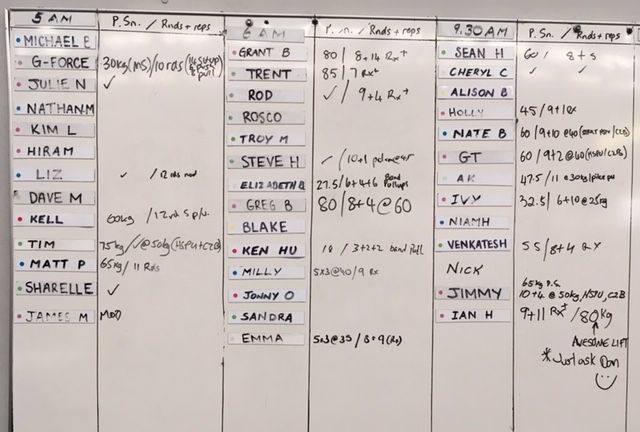 5 AM P.Sn. / Rnds + reps
MICHAEL E
G-FORCE 30kg(MS)/10 rds
JULIE N ✓
NATHAN M
KIM L
HIRAM
LIZ ✓ / 12 rds mod
DAVE M
KELL 60kg / 12rd
TIM 75kg/✓@50kg(HSPU+C2B)
MATT P 65kg / 11 Rds
SHARELLE ✓
JAMES M MOD
6 AM P. Sn. / Rnds + reps
GRANT B 80 / 8+14 Rx+
TRENT 85 / 7 Rx+
ROD ✓ / 9+4 Rx+
ROSCO
TROY M
STEVE H ✓ / 10+1
ELIZABETH B 27.5/6+4+6 Band Pullups
GREG B 80/8+4@60
BLAKE
KEN HU 18 / 3+2+2 band Pull
MILLY 5x3@40/9 Rx
JONNY O
SANDRA
EMMA 5x3@35 / 8+9(Rx)
9.30AM P. Sn. / Rnds + reps
SEAN H 60 / 8+5
CHERYL C ✓ ✓
ALISON B
HOLLY 45/9+1Rx
NATE B 60/9+10@40
GT 60/9+2@60(HSPU/C2B)
AK 47.5/11@30kg
IVY 32.5/6+10@25kg
NIAMH
VENKATESH 55/8+4 Rx
NICK
JIMMY 65kg P.S.
10+4@50kg,HSPU,C2B
IAN H 9+11 Rx+/80kg
AWESOME LIFT
*Just ask Dan